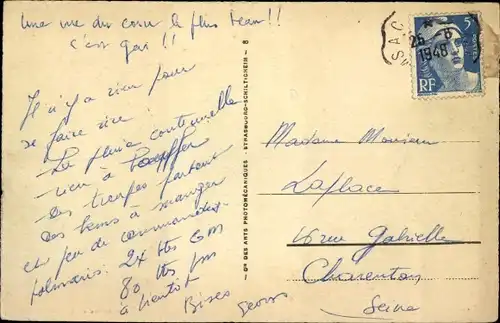 Une vue du coin le plus beau !!
c'est gai !!
Il n'y a rien pour
se faire rire
La pluie continuelle
rien à bouffer
des troupes partout
des bons à manger
et peu de
24 Hts
80 Hts
à bientôt
Bises
Cie DES ARTS PHOTOMÉCANIQUES - STRASBOURG-SCHILTIGHEIM - 8
26
1948
5F
RF
Madame Monsieur
Laplace
46 rue Gabrielle
Charenton
Seine